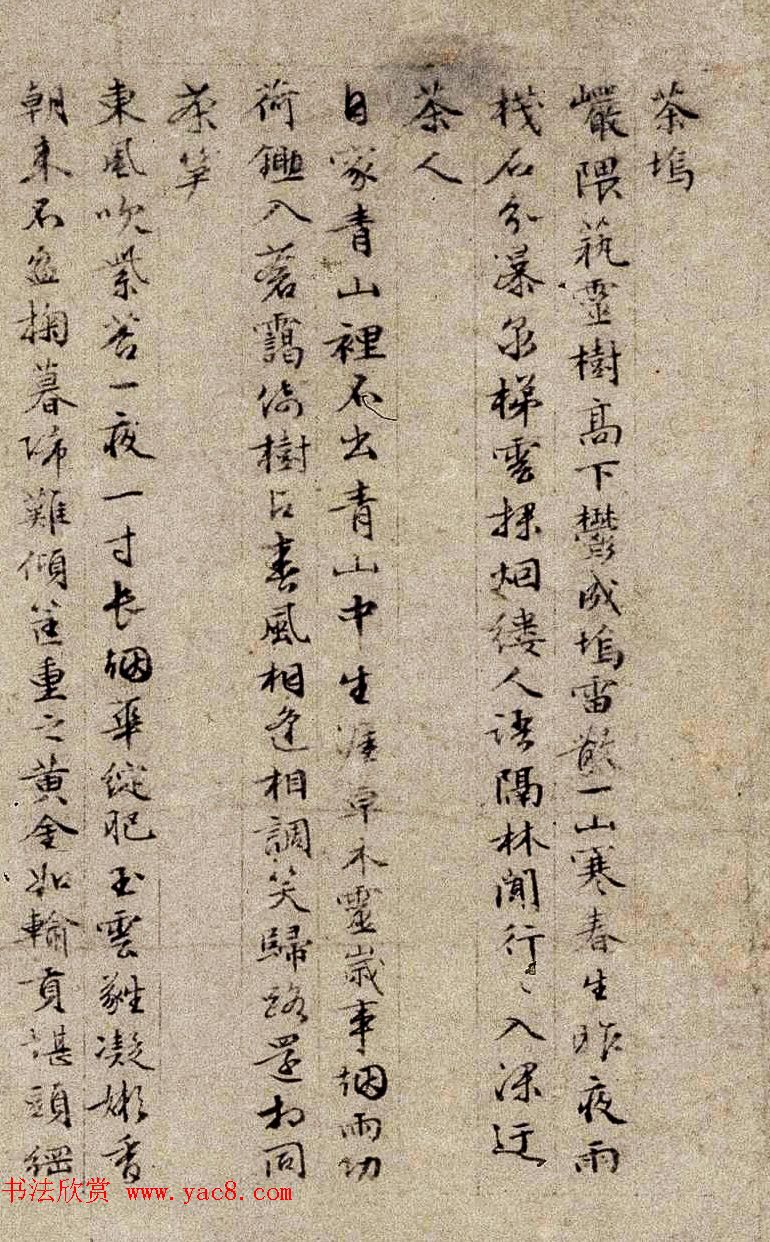 茶塢
巖隈蓺靈樹高下鬱成塢雷散一山寒春生昨夜雨
棧石分瀑泉梯雲探烟縷人語隔林聞行〻入深迂
茶人
自家青山裡不出青山中生涯草木靈歲事烟雨功
荷鋤入蒼靄倚樹占春風相逢相調笑歸路還相同
茶筍
東風吹紫苔一夜一寸長烟華綻肥玉雲蕤凝嫩香
朝來不盈掬暮歸難傾筐重之黃金如輸貢堪頭綱
书法欣赏 www.yac8.com